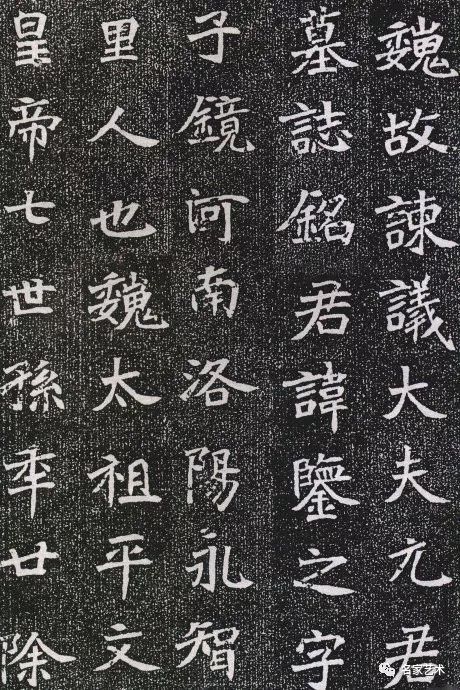 魏故諫議大夫元君
墓誌銘君諱鑒之字
子鏡河南洛陽永智
里人也魏太祖平文
皇帝七世孫年廿除
名家艺术